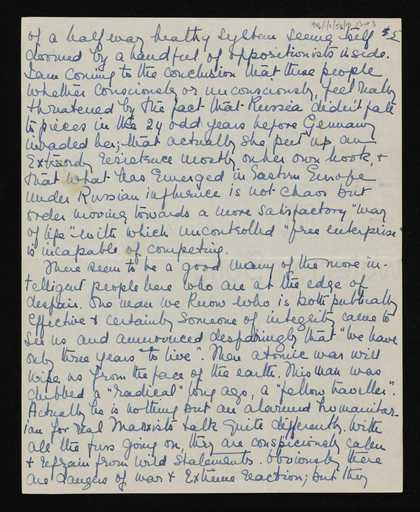 of a half way healthy system seeing itself
doomed by a handful of oppositionists inside.
I am coming to the conclusion that these people
whether consciously or unconsciously, feel really
threatened by the fact that Russia didn't fall
to pieces in the 24 odd years before Germany
invaded her; that actually she put up an
extraordy resistence mostly on her own hook, &
that what has emerged in Eastern Europe
under Russian influence is not chaos but
order moving towards a more satisfactory "way
of life" with which uncontrolled "free enterprise"
is incapable of competing.
There seem to be a good many of the more in-
telligent people here who are at the edge of
despair. One man we know who is both publically
effective & certainly someone of integrity came to
see us and announced despairingly that "we have
only three years to live". Then atomic war will
wipe us from the face of the earth. This man was
dubbed a "radical" long ago, a "fellow traveller".
Actually he is nothing but an alarmed humanitar-
ian for real Marxists talk quite differently. With
all the fuss going on, they are conspiciously calm
& refrain from wild statements. Obviously there
are dangers of war & extreme reaction; but they